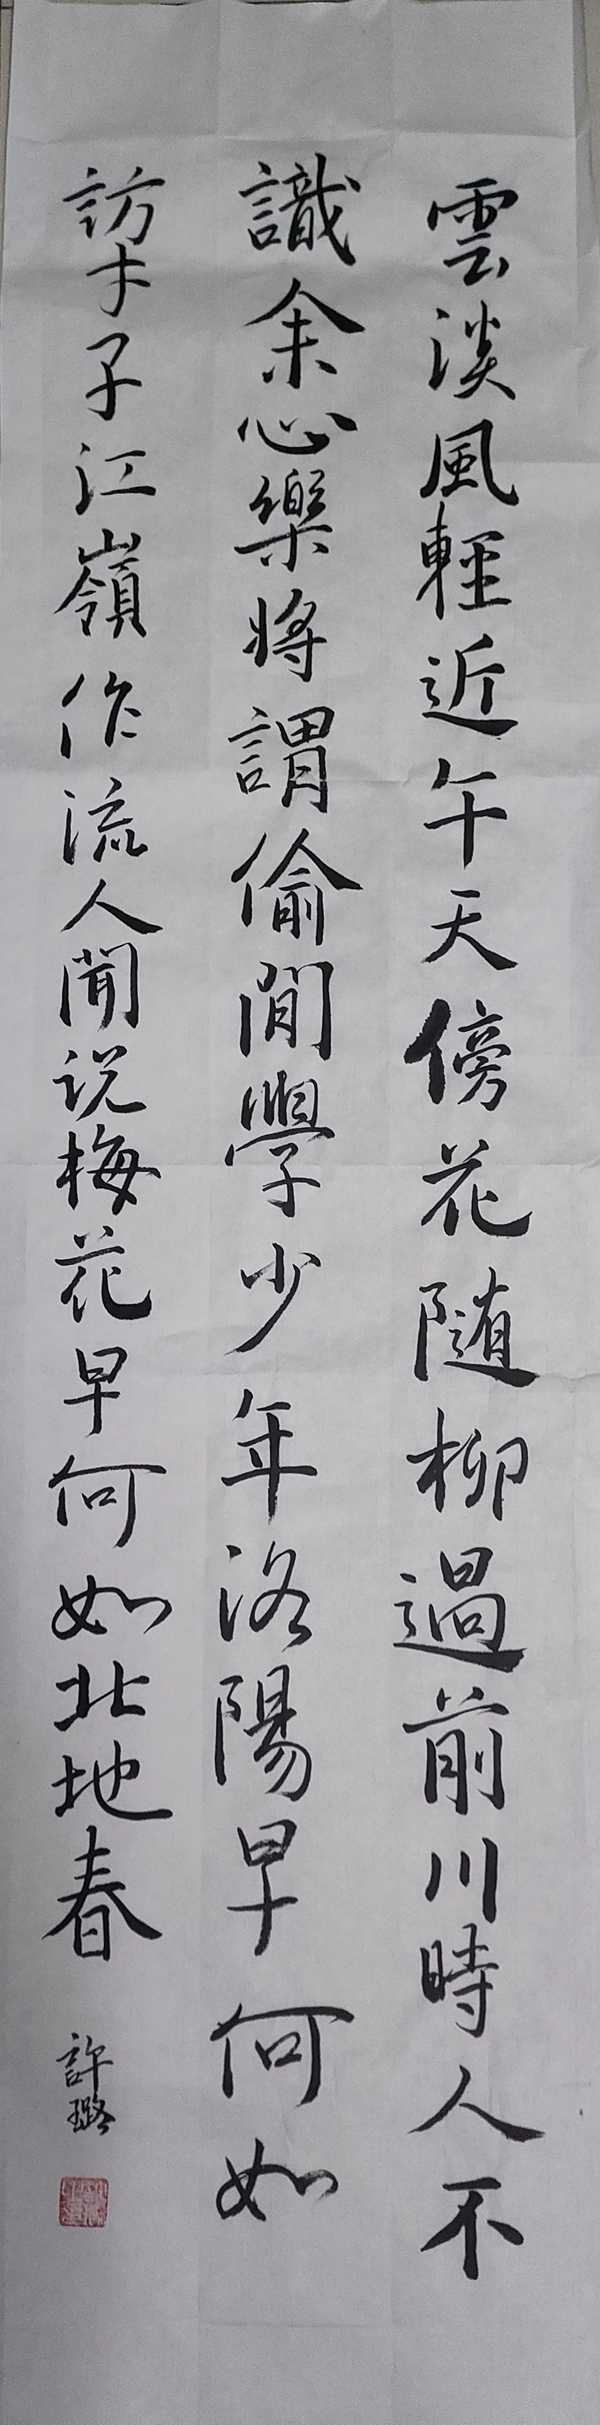 雲淡風輕近午天傍花随柳過前川時人不
識余心樂將謂偷閒學少年洛陽早何如
訪才子江嶺作流人聞说梅花早何如北地春
許璐